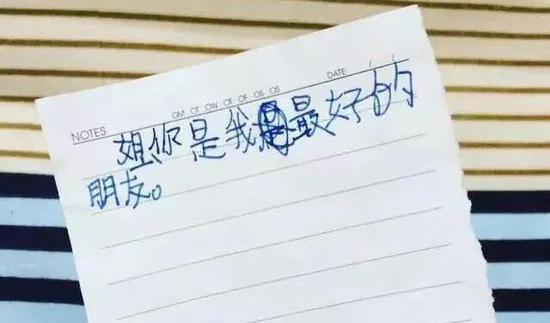 NOTES
DATE / /
姐你是我最好的
朋友。